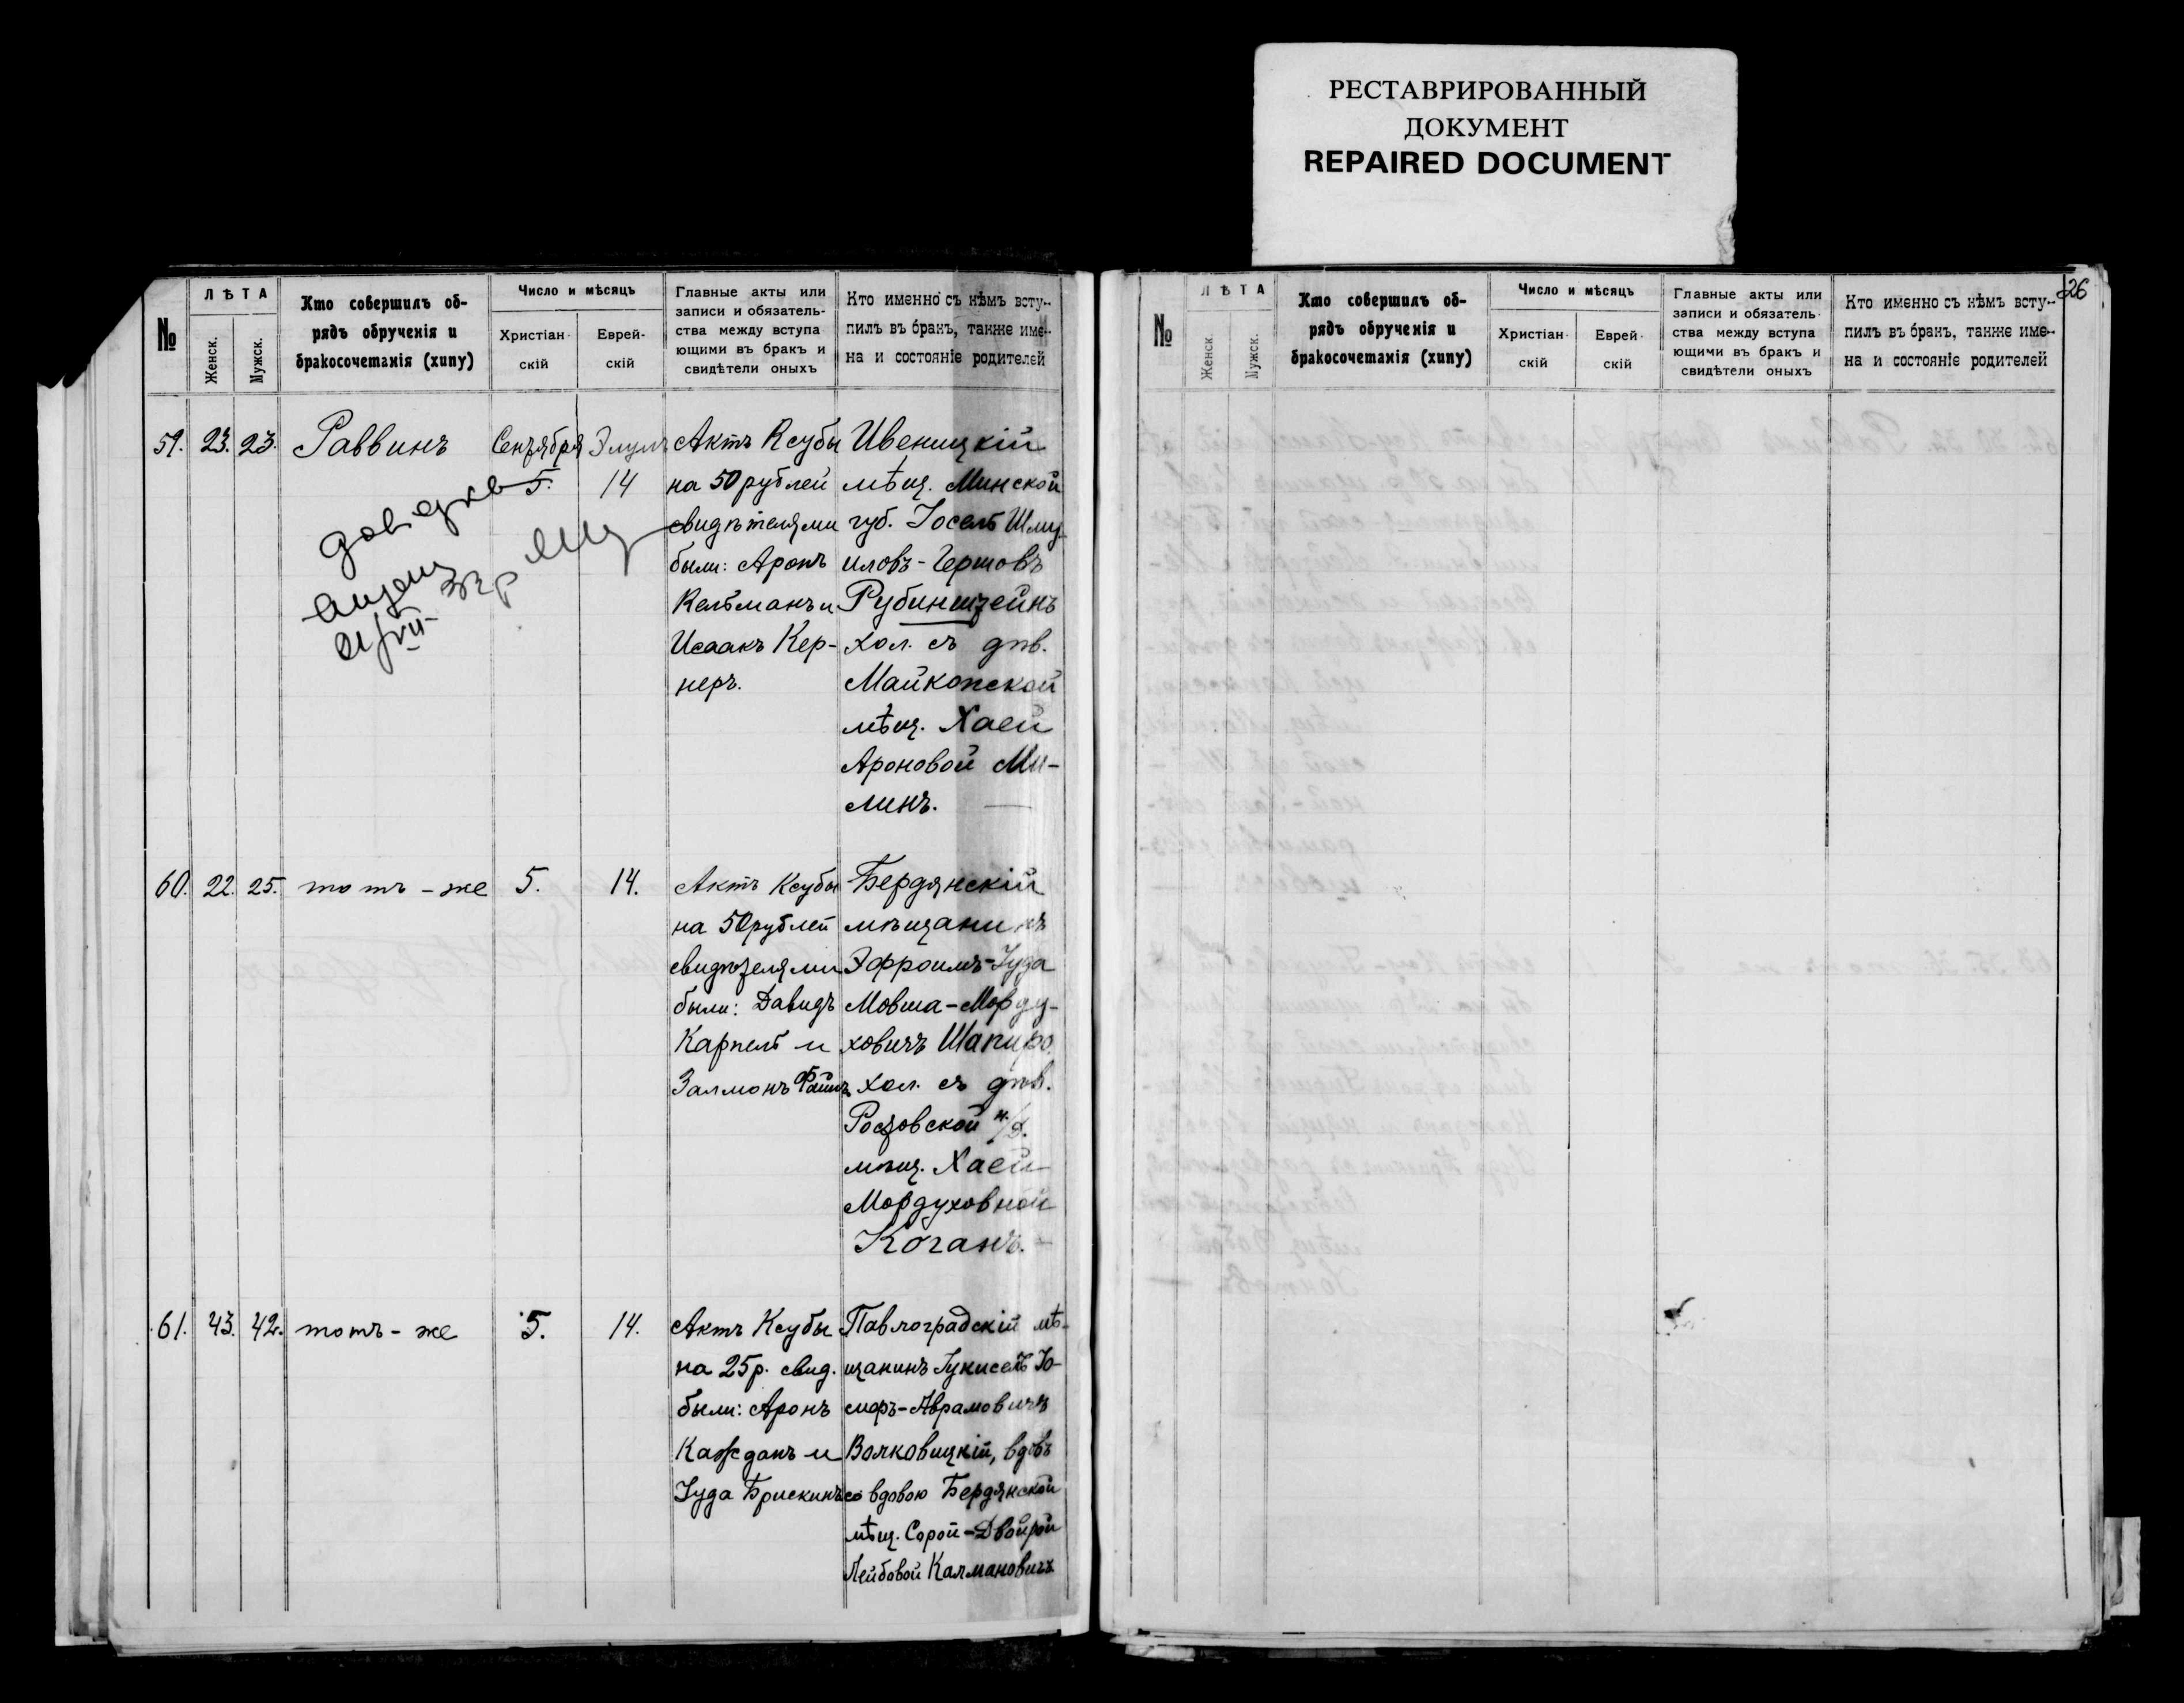 РЕСТАВРИРОВАННЫЙ
ДОКУМЕНТ
REPAIRED DOCUMENT
№
ЛѢТА
Женск.
Мужск.
Кто совершилъ об-
рядъ обрученія и
бракосочетанія (хупу)
Число и мѣсяцъ
Христіан-
скій
Еврей-
скій
Главные акты или
записи и обязатель-
ства между вступа
ющими въ бракъ и
свидѣтели оныхъ
Кто именно съ нѣмъ всту-
пилъ въ бракъ, также име-
на и состояніе родителей
59. 23. 23. Раввинъ
Сентября
5.
Элулъ
14
Актъ Ксубы
на 50 рублей
свидѣтелями
были: Аронъ
Кельманъ и
Исаакъ Кер-
неръ.
Ивеницкій
мѣщ. Минской
губ. Іосель Шму-
иловъ-Гершовъ
Рубинштейнъ
хол. съ дѣв.
Майкопской
мѣщ. Хаей
Ароновой Ми-
линъ.
60. 22. 25. тотъ-же 5. 14.
Актъ Ксубы
на 50 рублей
свидѣтелями
были: Давидъ
Карпель и
Залмонъ
Бердянскій
мѣщанинъ
Эфроимъ-Іуда
Мовша-Морду-
ховичъ Шапиро
хол. съ дѣв.
Ростовской н/Д.
мѣщ. Хаей
Мордуховной
Коганъ.
61. 43. 42. тотъ-же 5. 14.
Актъ Ксубы
на 25 р. свид.
были: Аронъ
Кажданъ и
Іуда Брискинъ
Павлоградскій мѣ-
щанинъ Іукисель Іо-
сифъ-Аврамовичъ
Волковицкій, вдовъ
со вдовою Бердянской
мѣщ. Сорой-Двойрой
Лейбовой Калмановичъ
26
№
ЛѢТА
Женск.
Мужск.
Кто совершилъ об-
рядъ обрученія и
бракосочетанія (хупу)
Число и мѣсяцъ
Христіан-
скій
Еврей-
скій
Главные акты или
записи и обязатель-
ства между вступа
ющими въ бракъ и
свидѣтели оныхъ
Кто именно съ нѣмъ всту-
пилъ въ бракъ, также име-
на и состояніе родителей